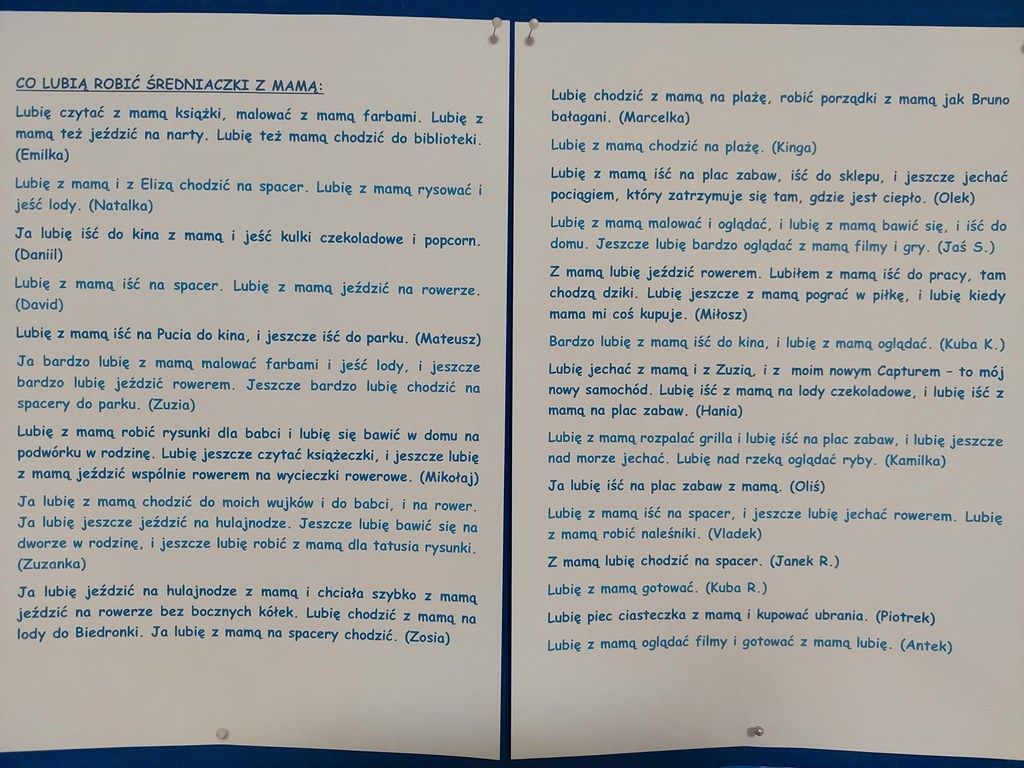 CO LUBIĄ ROBIĆ ŚREDNIACZKI Z MAMĄ:
Lubię czytać z mamą książki, malować z mamą farbami. Lubię z
mamą też jeździć na narty. Lubię też mamą chodzić do biblioteki.
(Emilka)
Lubię z mamą i z Elizą chodzić na spacer. Lubię z mamą rysować i
jeść lody. (Natalka)
Ja lubię iść do kina z mamą i jeść kulki czekoladowe i popcorn.
(Daniil)
Lubię z mamą iść na spacer. Lubię z mamą jeździć na rowerze.
(David)
Lubię z mamą iść na Pucia do kina, i jeszcze iść do parku. (Mateusz)
Ja bardzo lubię z mamą malować farbami i jeść lody, i jeszcze
bardzo lubię jeździć rowerem. Jeszcze bardzo lubię chodzić na
spacery do parku. (Zuzia)
Lubię z mamą robić rysunki dla babci i lubię się bawić w domu na
podwórku w rodzinę. Lubię jeszcze czytać książeczki, i jeszcze lubię
z mamą jeździć wspólnie rowerem na wycieczki rowerowe. (Mikołaj)
Ja lubię z mamą chodzić do moich wujków i do babci, i na rower.
Ja lubię jeszcze jeździć na hulajnodze. Jeszcze lubię bawić się na
dworze w rodzinę, i jeszcze lubię robić z mamą dla tatusia rysunki.
(Zuzanka)
Ja lubię jeździć na hulajnodze z mamą i chciała szybko z mamą
jeździć na rowerze bez bocznych kółek. Lubię chodzić z mamą na
lody do Biedronki. Ja lubię z mamą na spacery chodzić. (Zosia)
Lubię chodzić z mamą na plażę, robić porządki z mamą jak Bruno
bałagani. (Marcelka)
Lubię z mamą chodzić na plażę. (Kinga)
Lubię z mamą iść na plac zabaw, iść do sklepu, i jeszcze jechać
pociągiem, który zatrzymuje się tam, gdzie jest ciepło. (Olek)
Lubię z mamą malować i oglądać, i lubię z mamą bawić się, i iść do
domu. Jeszcze lubię bardzo oglądać z mamą filmy i gry. (Jaś S.)
Z mamą lubię jeździć rowerem. Lubiłem z mamą iść do pracy, tam
chodzą dziki. Lubię jeszcze z mamą pograć w piłkę, i lubię kiedy
mama mi coś kupuje. (Miłosz)
Bardzo lubię z mamą iść do kina, i lubię z mamą oglądać. (Kuba K.)
Lubię jechać z mamą i z Zuzią, i z moim nowym Capturem – to mój
nowy samochód. Lubię iść z mamą na lody czekoladowe, i lubię iść z
mamą na plac zabaw. (Hania)
Lubię z mamą rozpalać grilla i lubię iść na plac zabaw, i lubię jeszcze
nad morze jechać. Lubię nad rzeką oglądać ryby. (Kamilka)
Ja lubię iść na plac zabaw z mamą. (Oliś)
Lubię z mamą iść na spacer, i jeszcze lubię jechać rowerem. Lubię
z mamą robić naleśniki. (Vladek)
Z mamą lubię chodzić na spacer. (Janek R.)
Lubię z mamą gotować. (Kuba R.)
Lubię piec ciasteczka z mamą i kupować ubrania. (Piotrek)
Lubię z mamą oglądać filmy i gotować z mamą lubię. (Antek)